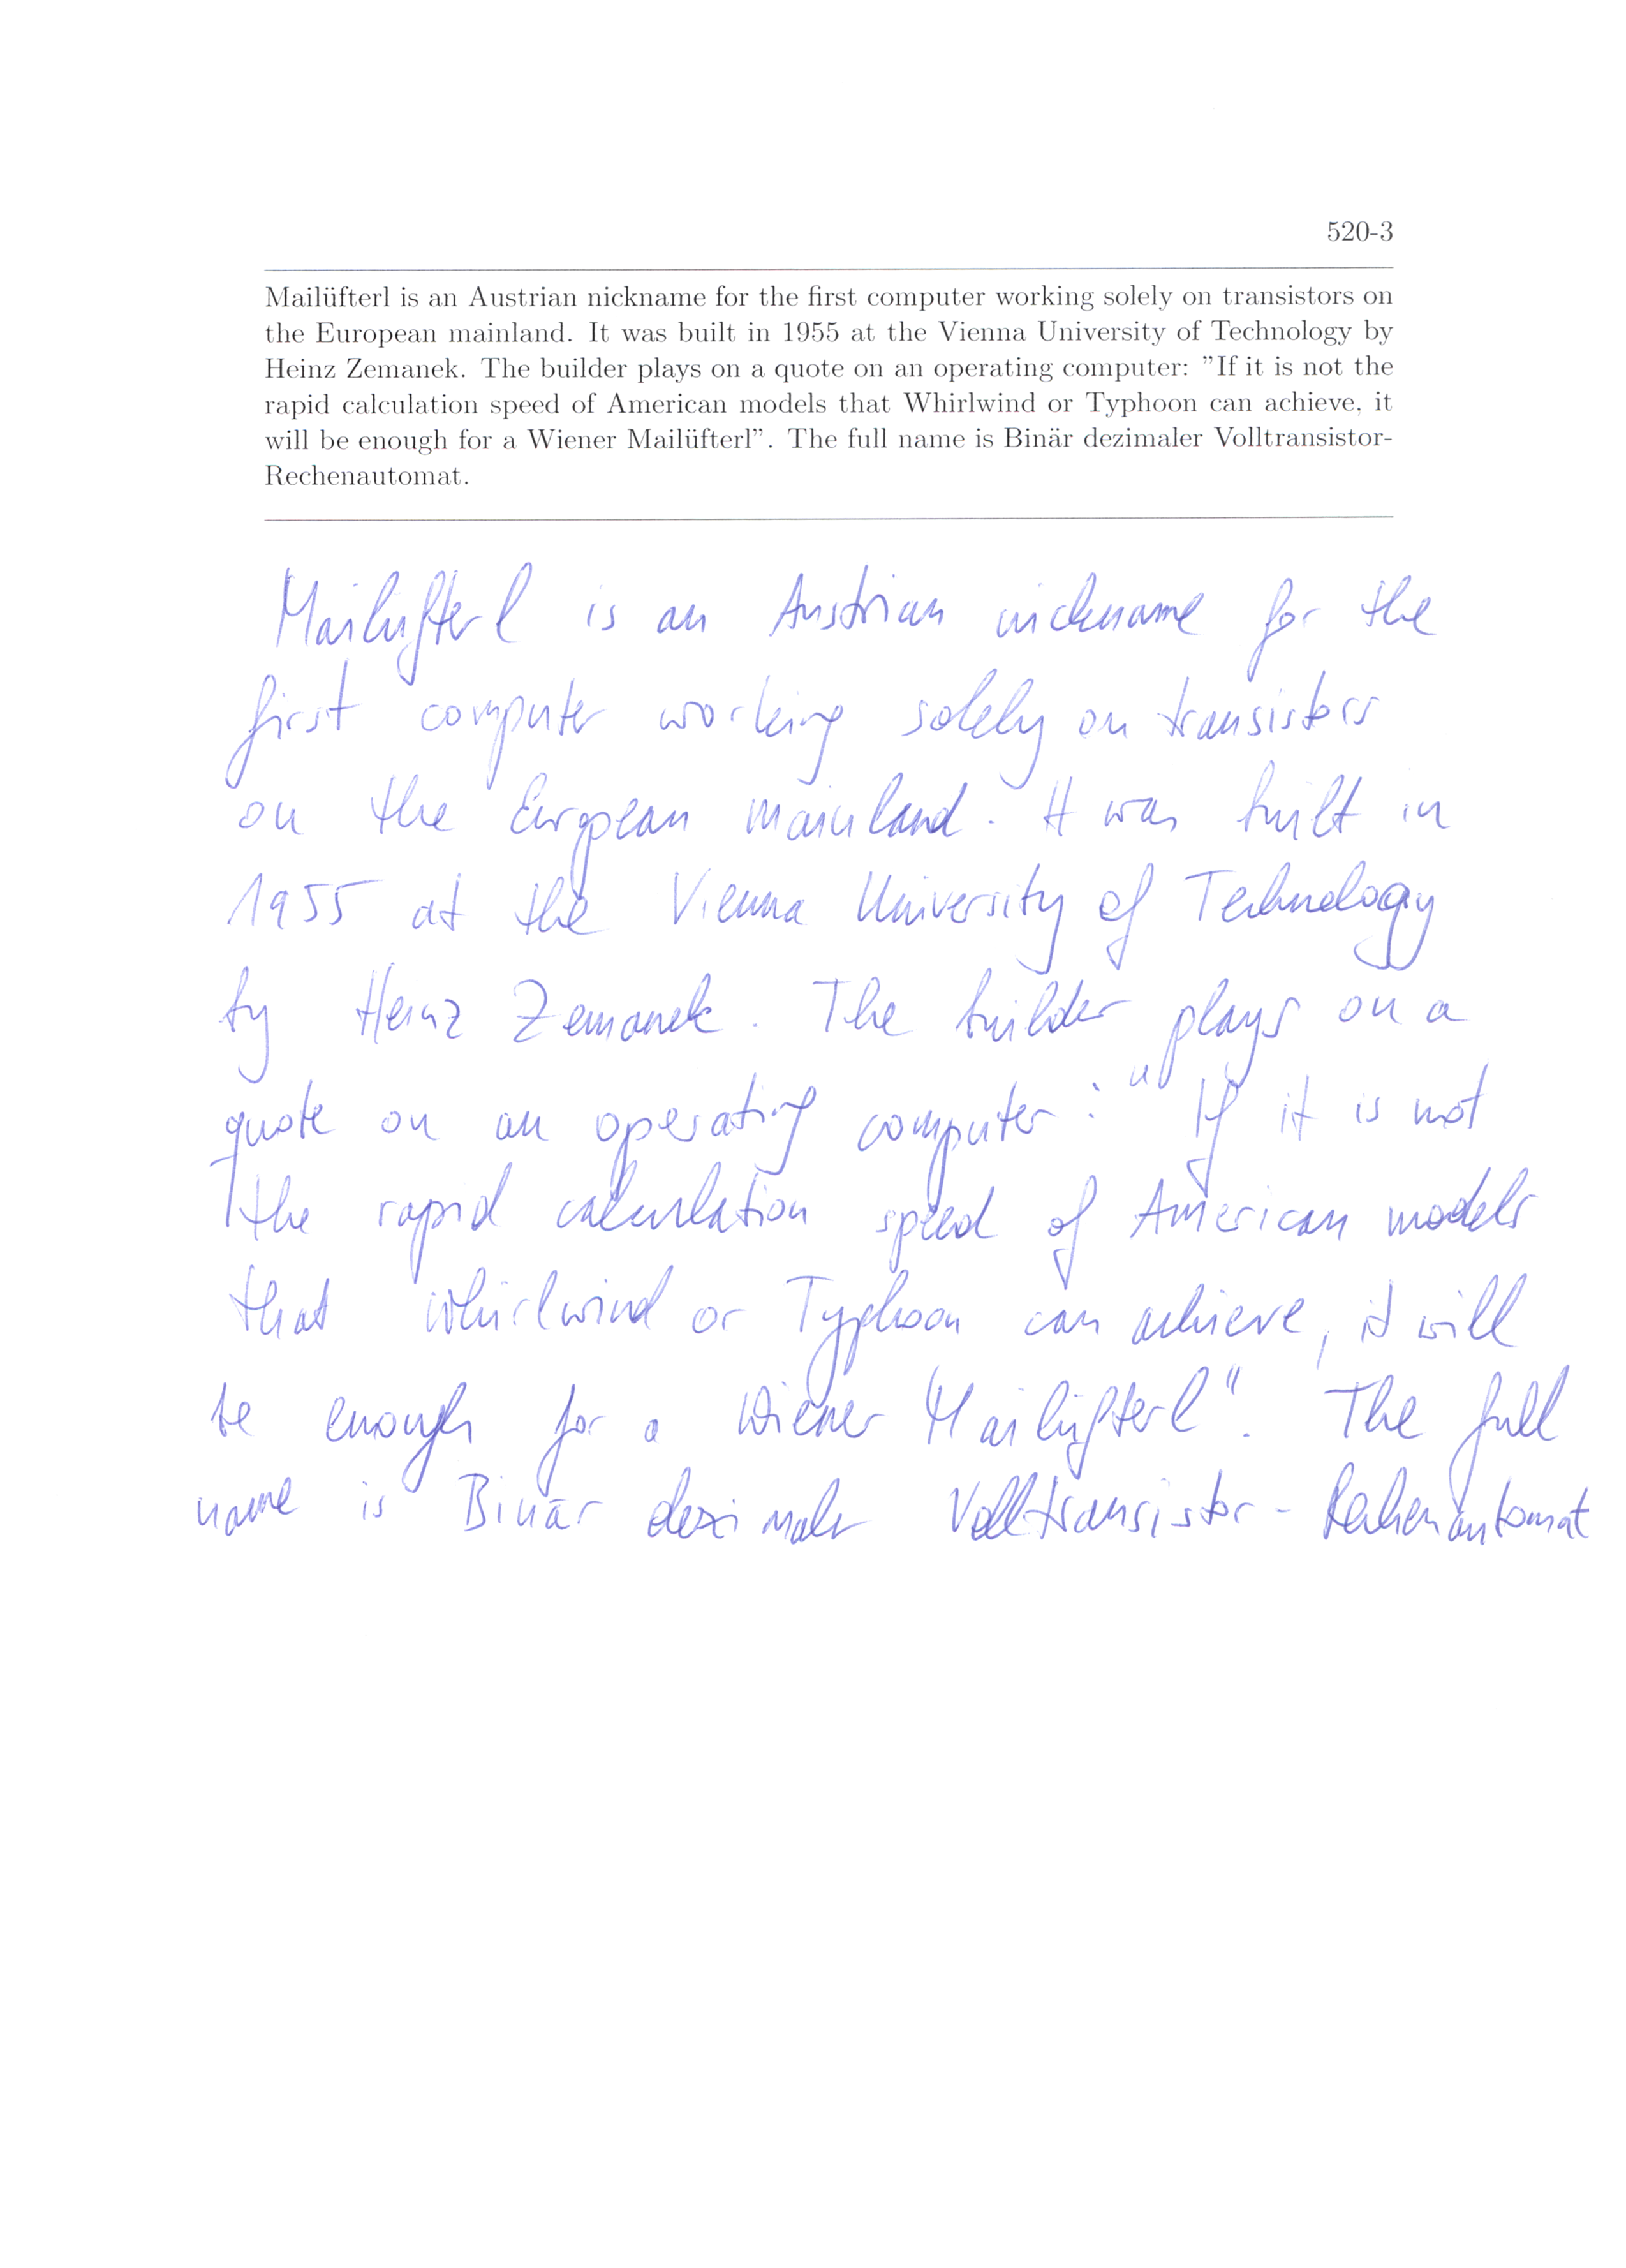 520-3
Mailüfterl is an Austrian nickname for the first computer working solely on transistors on
the European mainland. It was built in 1955 at the Vienna University of Technology by
Heinz Zemanek. The builder plays on a quote on an operating computer: "If it is not the
rapid calculation speed of American models that Whirlwind or Typhoon can achieve, it
will be enough for a Wiener Mailüfterl". The full name is Binär dezimaler Volltransistor-
Rechenautomat.
Mailüfterl is an Austrian nickname for the
first computer working solely on transistors
on the European mainland. It was built in
1955 at the Vienna University of Technology
by Heinz Zemanek. The builder plays on a
quote on an operating computer: "If it is not
the rapid calculation speed of American models
that Whirlwind or Typhoon can achieve, it will
be enough for a Wiener Mailüfterl". The full
name is Binär dezimaler Volltransistor-Rechenautomat